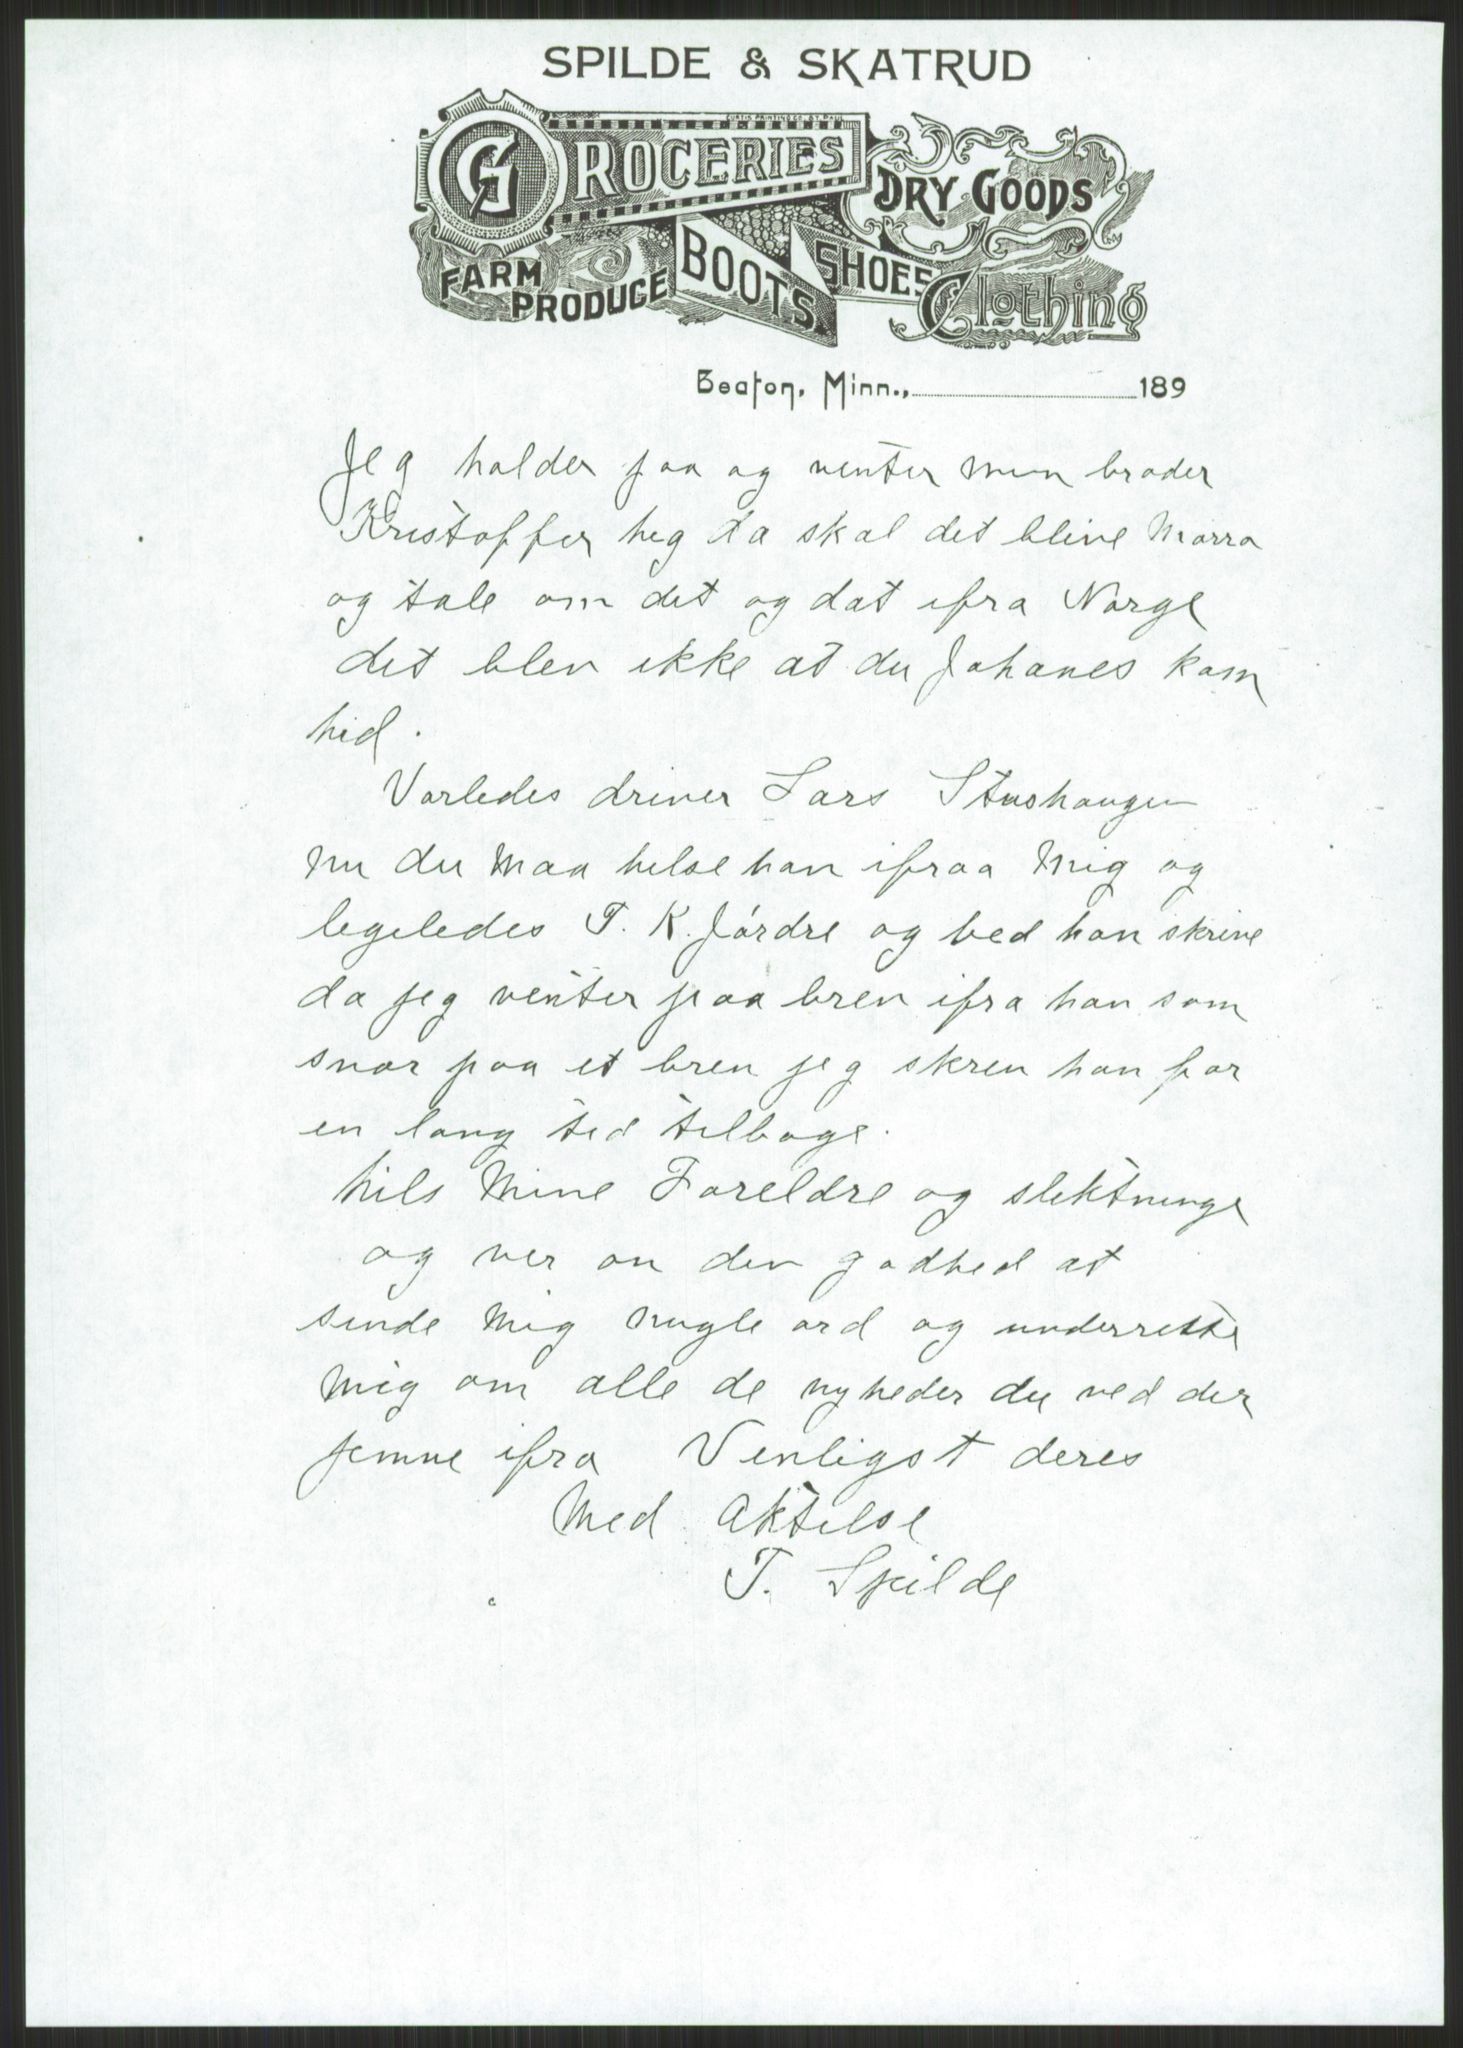 SPILDE & SKATRUD
CURTIS PRINTING CO. ST. PAUL
GROCERIES
DRY GOODS
FARM PRODUCE
BOOTS
SHOES
Clothing
Beaton, Minn., 189
Jeg holder paa og venter min broder
Kristoffer heg da skal det blive Morro
og tale om det og dat ifra Norge
det blev ikke at du Johanes kom
hid.
Vorledes driver Lars Stushaugen
nu du Maa helse han ifraa Mig og
legeledes T. K. Jórdre og bed han skrive
da jeg venter paa brev ifra han som
svar paa et brev jeg skrev han for
en lang tid tilbage.
hils Mine Foreldre og slektninge
og ver on den godhed at
sende Mig nogle ord og underrette
Mig om alle de nyheder du ved der
jemme ifra Venligst deres
Med Aktelse
T. Spilde